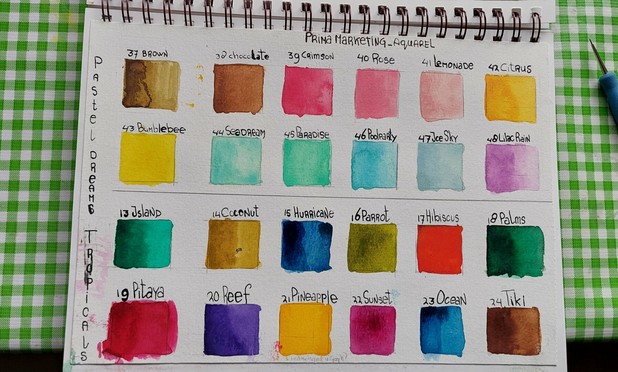 PRIMA MARKETING_AQUAREL
PASTEL DREAMS
37 BROWN 38 chocoLate 39 CRIMSON 40 ROSE 41 LEMONADE 42 CITRUS
43 Bumblebee 44 SEADREAM 45 PARADISE 46 Poolparty 47 IceSky 48 LilacRain
TROPICALS
13 ISland 14 COCONUT 15 HURRICANE 16 PARROT 17 Hibiscus 18 Palms
19 Pitaya 20 Reef 21 PINEAPPLE 22 SUNSET 23 OCEAN 24 Tiki